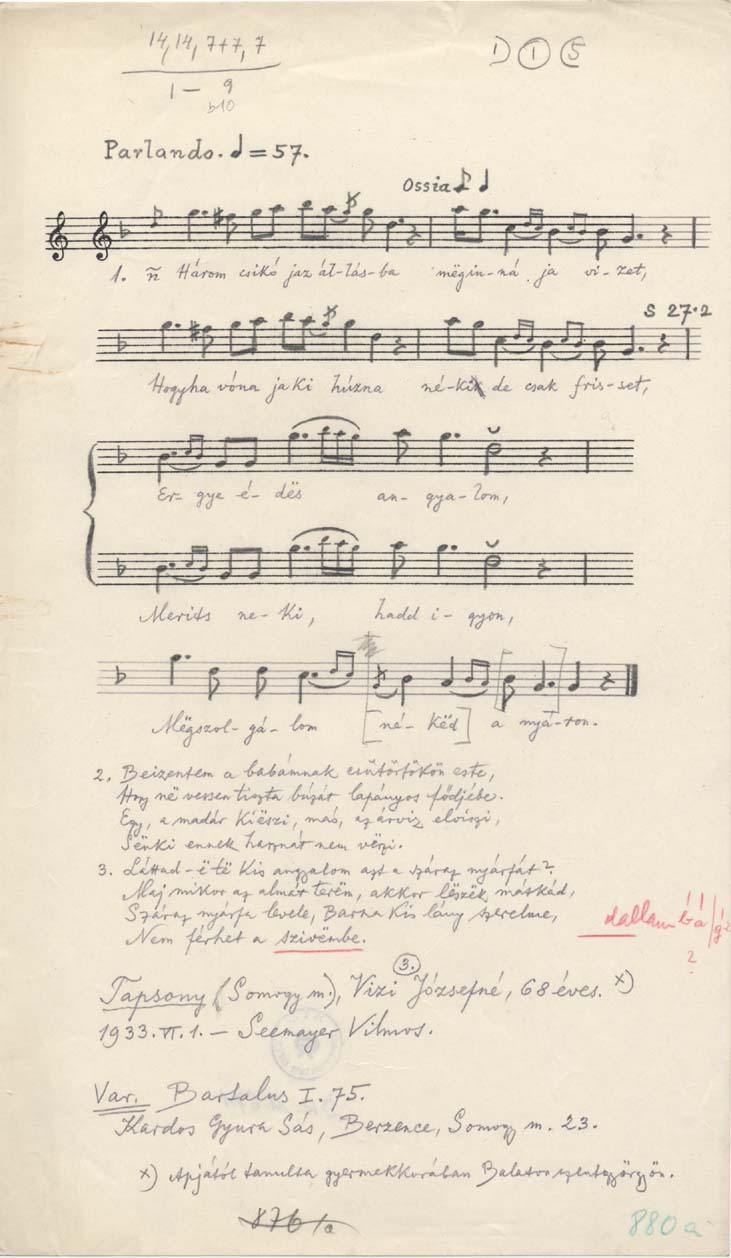 14, 14, 7+7, 7
1 – 9
b10
1) ① 5
Parlando. = 57.
Ossia
1. ñ Három csikó jaz ál-lás-ba mëgin-ná ja vi-zet,
S 27.2
Hogyha vóna ja ki húzna né-kik de csak fris-set,
Er-gye é-dës an-gya-lom,
Merits ne-ki, hadd i-gyon,
Mëgszol-gá-lom [né-këd] a nyá-ron.
2. Beizentem a babámnak csütörtökön este,
Hogy në vessen tiszta búzát lapányos fődjébe.
Egy, a madár kiëszi, más, az árvíz elviszi,
Sënki ennek hasznát nem vëszi.
3. Láttad-ë të kis angyalom azt a száraz nyárfát?
Maj mikor az almát terëm, akkor lëszëk máskád,
Száraz nyárfa levele, Barna kis lány szerelme,
Nem férhet a szivëmbe.
dallam
?
3.
Tapsony (Somogy m.), Vizi Józsefné, 68 éves. x)
1933. VI. 1. – Seemayer Vilmos.
Var. Bartalus I. 75.
Kardos Gyura Sás, Berzence, Somogy m. 23.
x) Apjától tanulta gyermekkorában Balatonszentgyörgyön.
876/a
880a